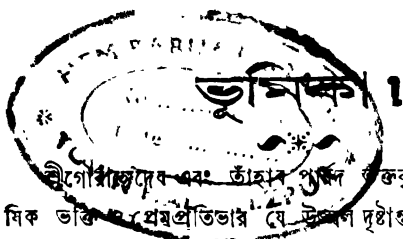 ভূমিকা ।
শ্রীগৌরাঙ্গদেব এবং তাঁহার পার্ষদ ভক্তবৃ
ষিক ভক্তি ও প্রেমপ্রতিভার যে উজ্জ্বল দৃষ্টান্ত